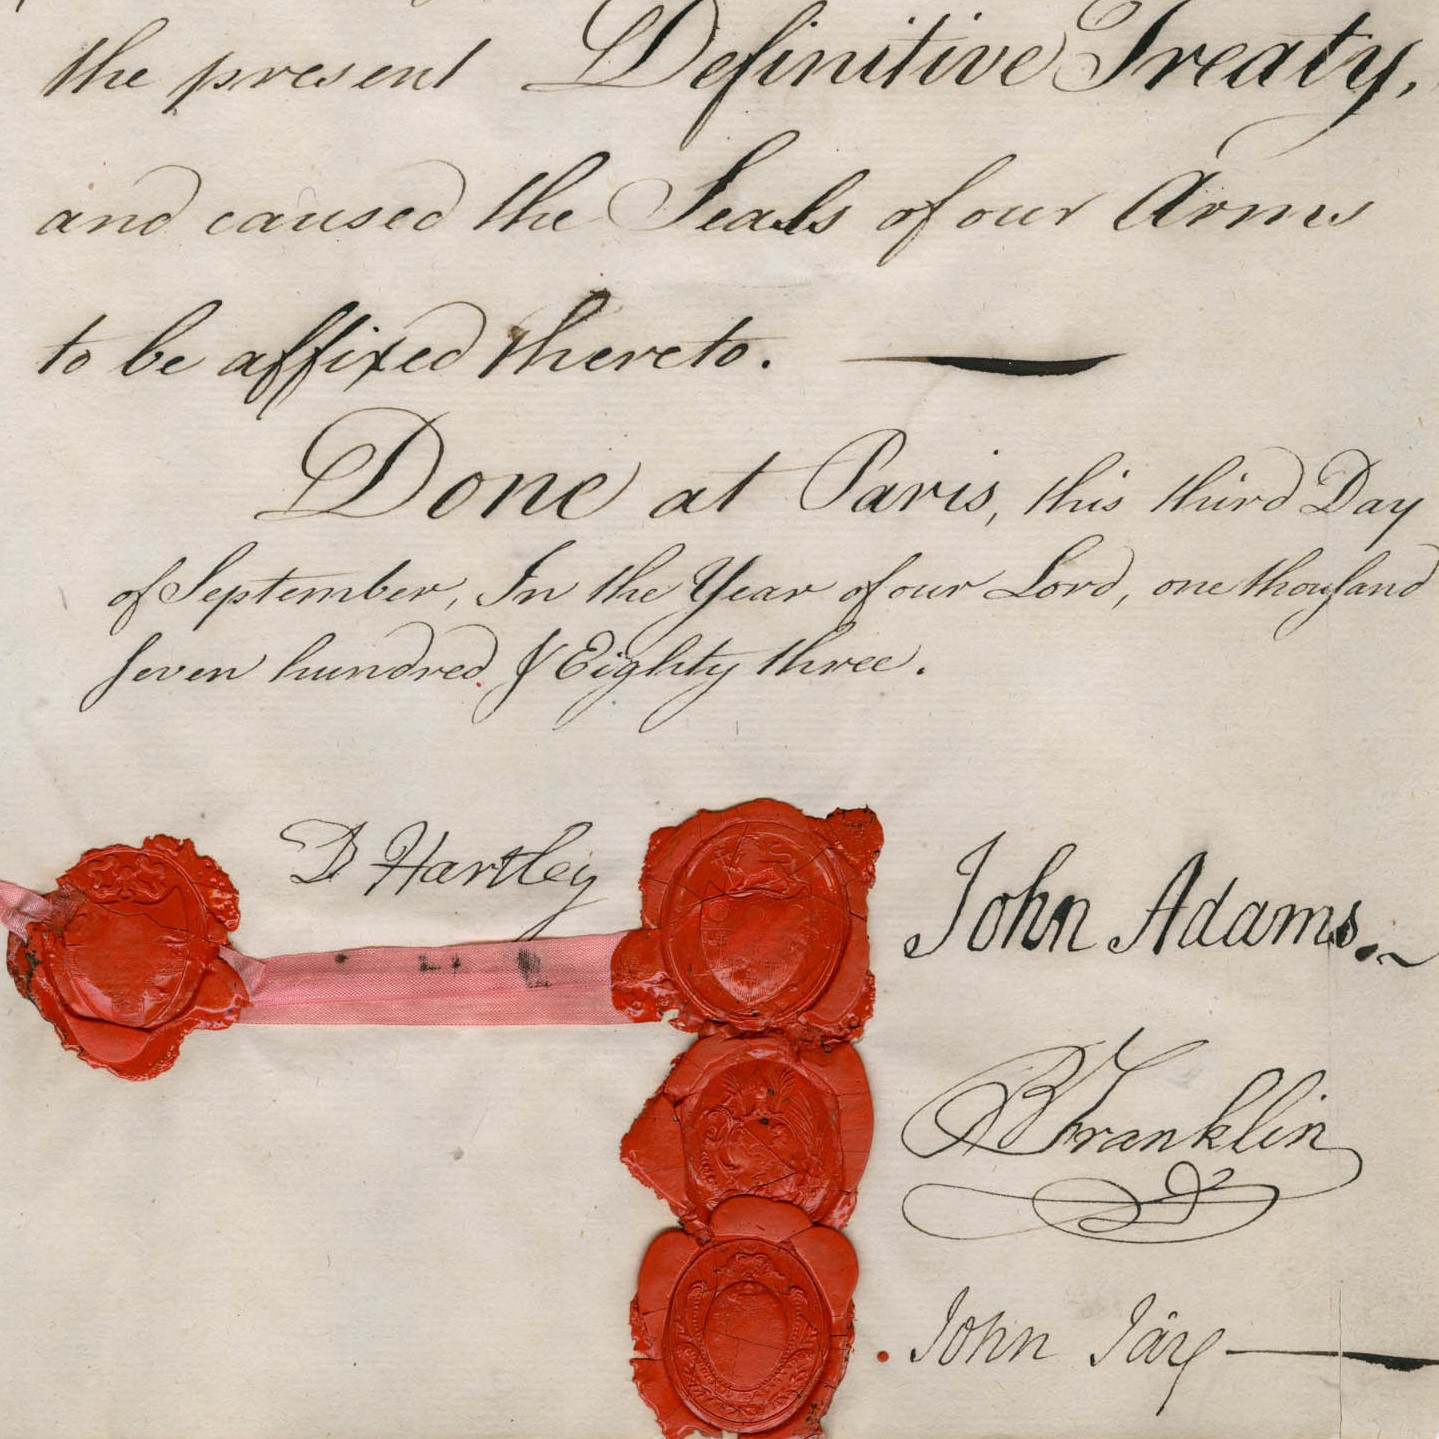 the present Definitive Treaty,
and caused the Seals of our Arms
to be affixed thereto.
Done at Paris, this third Day
of September, In the Year of our Lord, one thouſand
ſeven hundred & Eighty three.
D Hartley
John Adams.
B Franklin
John Jay